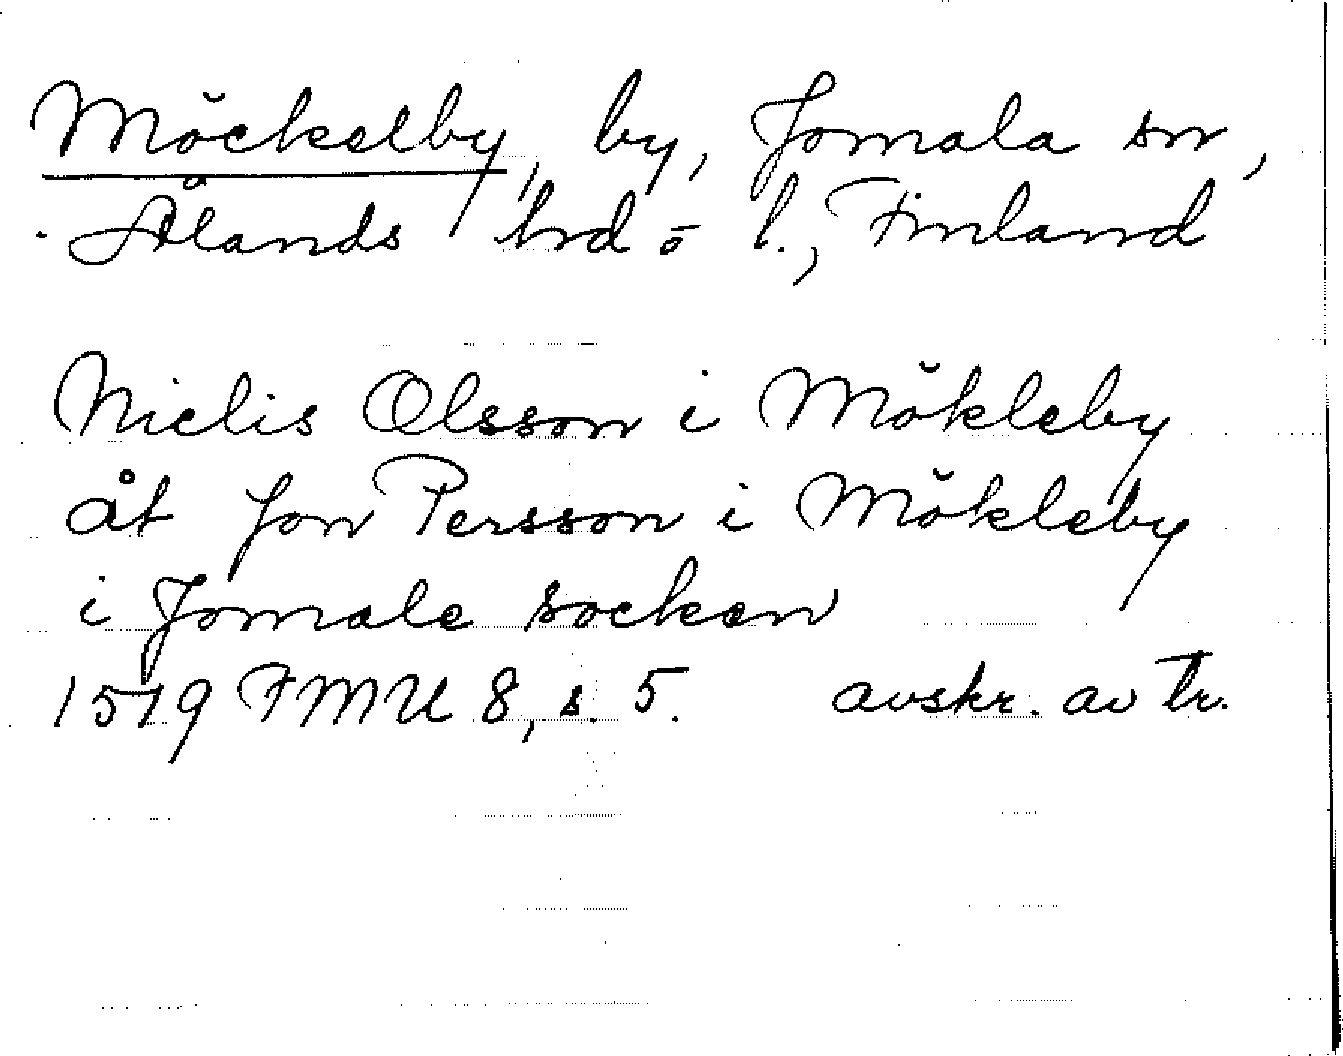 Möckelby, by, Jomala sn,
Ålands hrd o l., Finland
Nielis Olsson i Mökleby
åt Jon Persson i Mökleby
i Jomale socken
1519 FMU 8, s. 5. avskr. av tr.